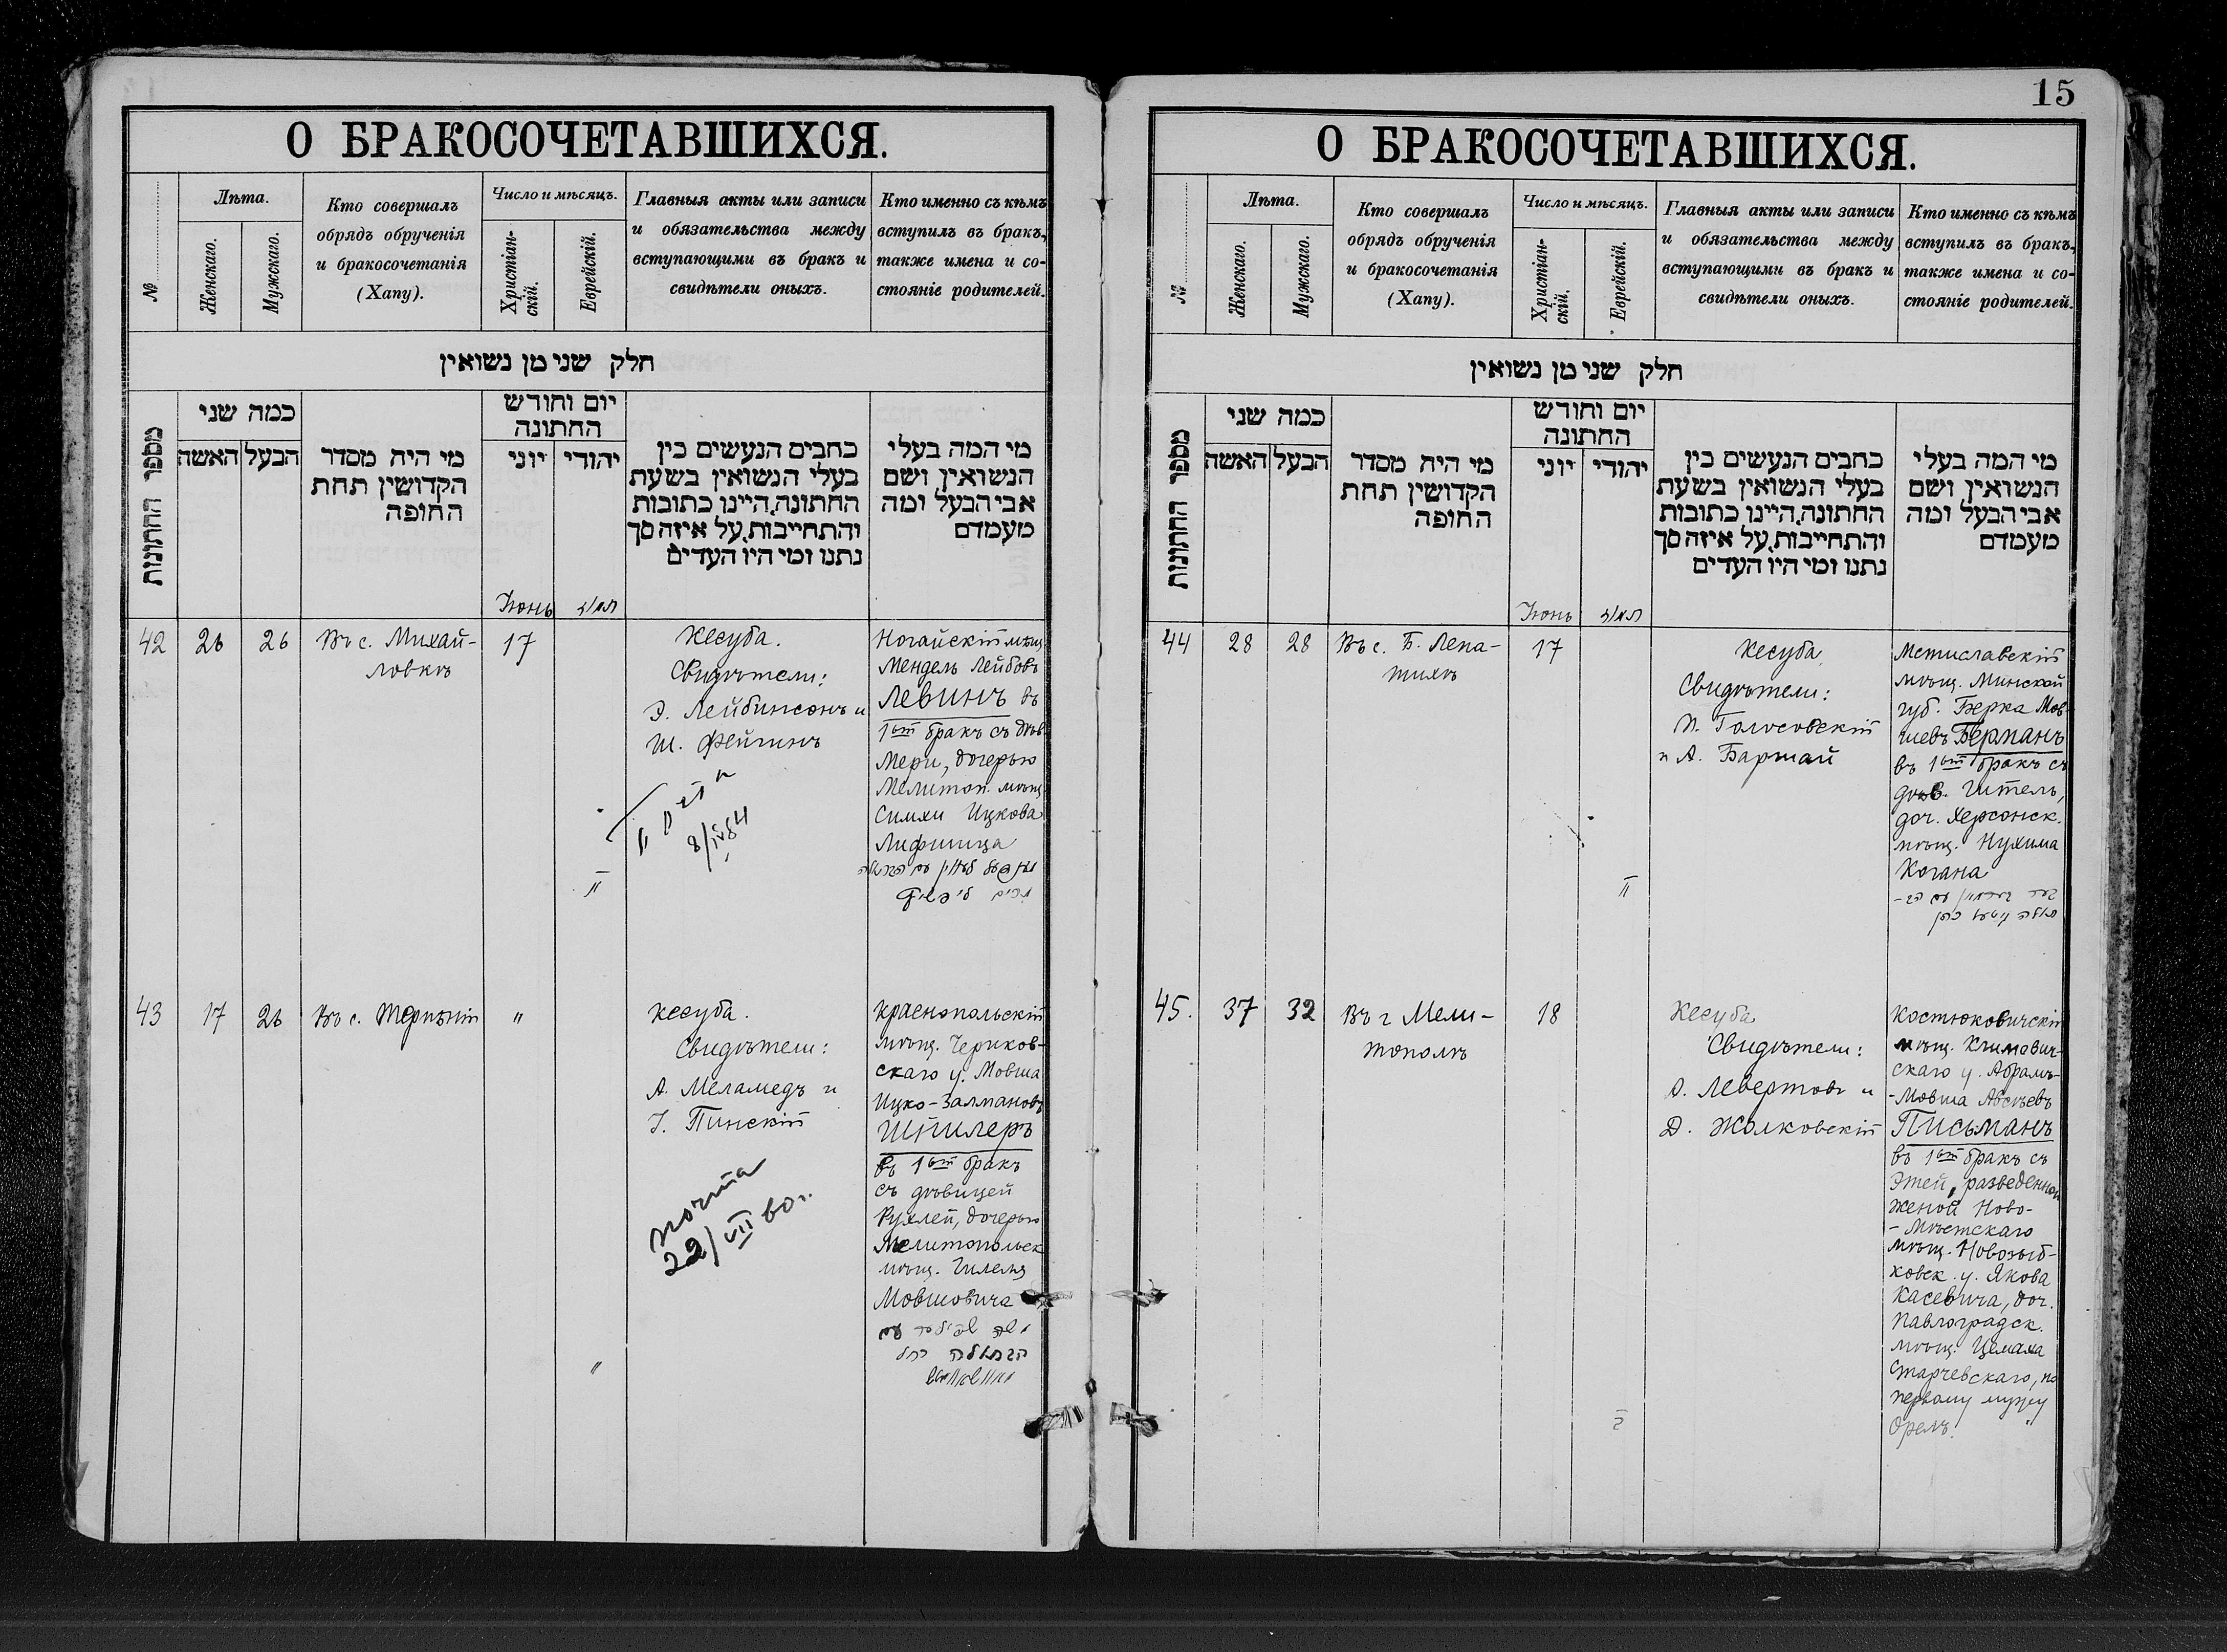 О БРАКОСОЧЕТАВШИХСЯ.
№
Лѣта.
Женскаго.
Мужскаго.
Кто совершалъ
обрядъ обрученія
и бракосочетанія
(Хапу).
Число и мѣсяцъ.
Христіан-
скій.
Еврейскій.
Главныя акты или записи
и обязательства между
вступающими въ бракъ и
свидѣтели оныхъ.
Кто именно съ кѣмъ
вступилъ въ бракъ,
также имена и со-
стояніе родителей.
חלק שני מן נשואין
מספר החתונות
כמה שני
האשה
הבעל
מי היה מסדר
הקדושין תחת
החופה
יום וחודש
החתונה
יוני
יהודי
כתבים הנעשים בין
בעלי הנשואין בשעת
החתונה, היינו כתובות
והתחייבות, על איזה סך
נתנו ומי היו העדים
מי המה בעלי
הנשואין ושם
אבי הבעל ומה
מעמדם
Іюнь
42
26
26
Въ с. Михай-
ловкѣ
17
Кесуба.
Свидѣтели:
Э. Лейбинсонъ и
Ш. Фейгинъ
8/IV 84
Ногайскій мѣщ.
Мендель Лейбовъ
Левинъ въ
1ый бракъ съ дѣв.
Мери, дочерью
Мелитоп. мѣщ.
Симхи Ицкова
Лифшица
43
17
26
Въ с. Терпѣнiи
"
Кесуба.
Свидѣтели:
А. Меламедъ и
І. Пинскій
22/VII 60 г.
Краснопольскій
мѣщ. Чериков-
скаго у. Мовша
Ицко-Залмановъ
Шпилеръ
въ 1ый бракъ
съ дѣвицей
Рухлей, дочерью
Мелитопольск
мѣщ. Гилеля
Мовшовича
הבתולה רחל
15
О БРАКОСОЧЕТАВШИХСЯ.
№
Лѣта.
Женскаго.
Мужскаго.
Кто совершалъ
обрядъ обрученія
и бракосочетанія
(Хапу).
Число и мѣсяцъ.
Христіан-
скій.
Еврейскій.
Главныя акты или записи
и обязательства между
вступающими въ бракъ и
свидѣтели оныхъ.
Кто именно съ кѣмъ
вступилъ въ бракъ,
также имена и со-
стояніе родителей.
חלק שני מן נשואין
מספר החתונות
כמה שני
האשה
הבעל
מי היה מסדר
הקדושין תחת
החופה
יום וחודש
החתונה
יוני
יהודי
כתבים הנעשים בין
בעלי הנשואין בשעת
החתונה, היינו כתובות
והתחייבות, על איזה סך
נתנו ומי היו העדים
מי המה בעלי
הנשואין ושם
אבי הבעל ומה
מעמדם
Іюнь
44
28
28
Въ с. Б. Лепа-
тихѣ
17
Кесуба
Свидѣтели:
и А. Баршай
Мстиславскій
мѣщ. Минской
губ. Берка Мов-
шевъ Берманъ
въ 1ый бракъ съ
дѣв. Гитель,
доч. Херсонск.
мѣщ. Нухима
Когана
45.
37
32
Въ г Мели-
тополѣ
18
Кесуба
Свидѣтели:
Левертовъ и
Д. Жолковскій
Костюковичскій
мѣщ. Климович-
скаго у. Абрамъ-
-Мовша Авсѣевъ
Письманъ
въ 1ый бракъ съ
Этей, разведенной
женой Ново-
-Мѣстскаго
мѣщ. Новозыб-
ковск. у. Якова
Касевича, доч.
Павлоградск.
мѣщ. Цемаха
Старчевскаго, по
первому мужу
Орелъ.